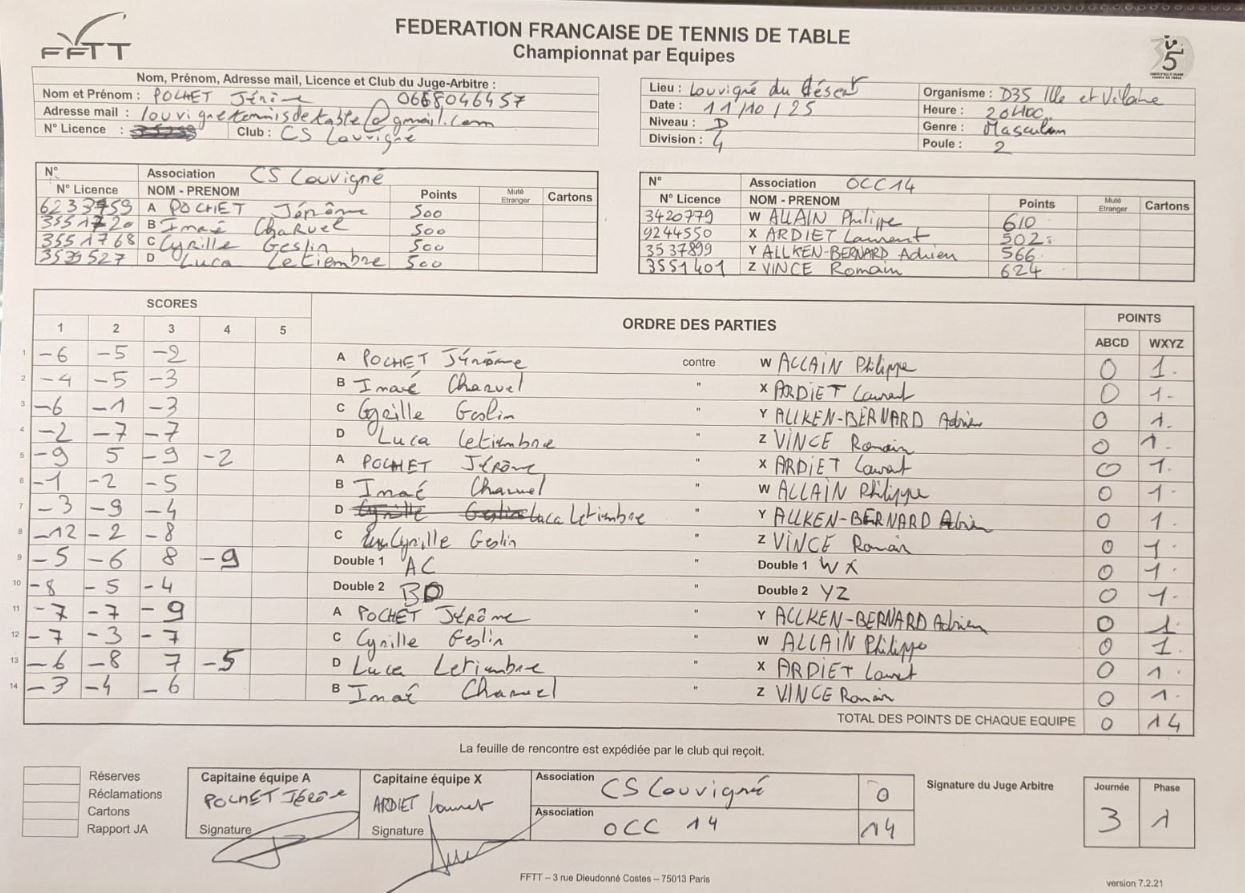 FFTT
FEDERATION FRANCAISE DE TENNIS DE TABLE
Championnat par Equipes
Nom, Prénom, Adresse mail, Licence et Club du Juge-Arbitre :
Nom et Prénom : POCHET Jérôme 0668046457
Adresse mail : louvignetennisdetable@gmail.com
N° Licence : Club : CS Louvigné
Lieu : Louvigné du Désert
Date : 11/10/25
Niveau : D
Division : 4
Organisme : D35 Ille et Vilaine
Heure : 20H00
Genre : Masculin
Poule : 2
N° Association CS Louvigné
N° Licence NOM - PRENOM Points Muté Etranger Cartons
6233759 A POCHET Jérôme 500
3551720 B Imaé Charuel 500
3551768 C Cyrille Geslin 500
3529527 D Luca Letiembre 500
N° Association OCC14
N° Licence NOM - PRENOM Points Muté Etranger Cartons
3420779 W ALLAIN Philippe 610
9244550 X ARDIET Laurent 502
3537899 Y AILKEN-BERNARD Adrien 566
3551401 Z VINCE Romain 624
SCORES ORDRE DES PARTIES POINTS
1 2 3 4 5 ABCD WXYZ
1 -6 -5 -2 A POCHET Jérôme contre W ALLAIN Philippe 0 1
2 -4 -5 -3 B Imaé Charuel " X ARDIET Laurent 0 1
3 -6 -1 -3 C Cyrille Geslin " Y AILKEN-BERNARD Adrien 0 1
4 -2 -7 -7 D Luca Letiembre " Z VINCE Romain 0 1
5 -9 5 -9 -2 A POCHET Jérôme " X ARDIET Laurent 0 1
6 -1 -2 -5 B Imaé Charuel " W ALLAIN Philippe 0 1
7 -3 -9 -4 D Luca Letiembre " Y AILKEN-BERNARD Adrien 0 1
8 -12 -2 -8 C Cyrille Geslin " Z VINCE Romain 0 1
9 -5 -6 8 -9 Double 1 AC " Double 1 WX 0 1
10 -8 -5 -4 Double 2 BD " Double 2 YZ 0 1
11 -7 -7 -9 A POCHET Jérôme " Y AILKEN-BERNARD Adrien 0 1
12 -7 -3 -7 C Cyrille Geslin " W ALLAIN Philippe 0 1
13 -6 -8 7 -5 D Luca Letiembre " X ARDIET Laurent 0 1
14 -3 -4 -6 B Imaé Charuel " Z VINCE Romain 0 1
TOTAL DES POINTS DE CHAQUE EQUIPE 0 14
La feuille de rencontre est expédiée par le club qui reçoit.
Réserves
Réclamations
Cartons
Rapport JA
Capitaine équipe A
POCHET Jérôme
Signature
Capitaine équipe X
ARDIET Laurent
Signature
Association CS Louvigné 0
Association OCC 14 14
Signature du Juge Arbitre
Journée Phase
3 1
FFTT – 3 rue Dieudonné Costes – 75013 Paris
version 7.2.21